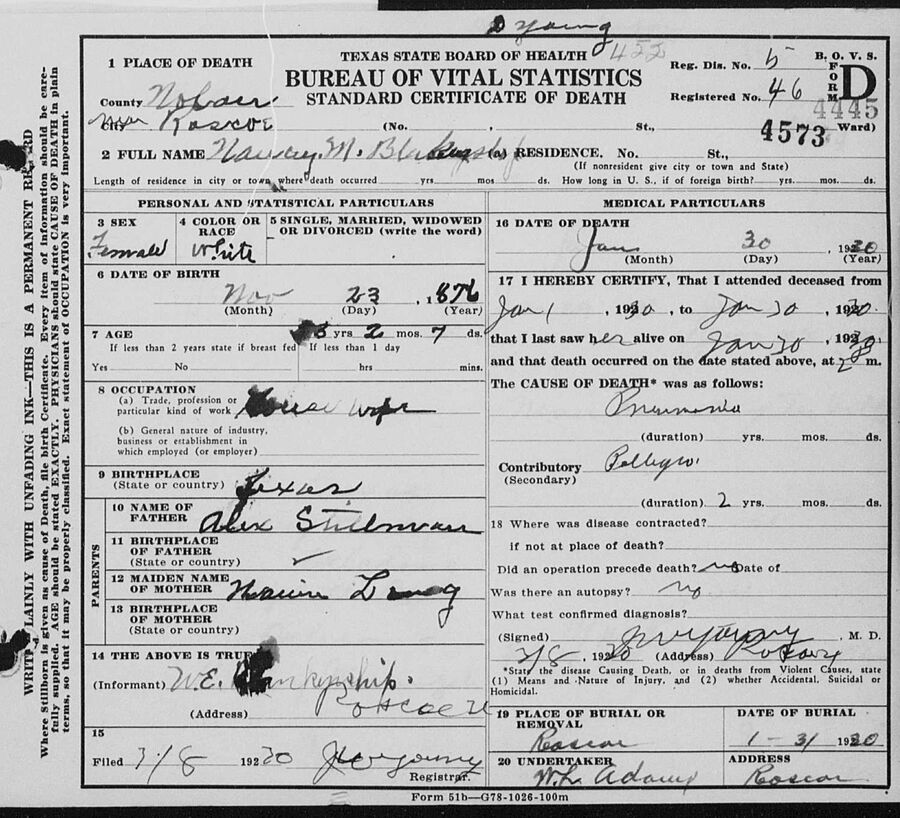 D Young
452
TEXAS STATE BOARD OF HEALTH
BUREAU OF VITAL STATISTICS
STANDARD CERTIFICATE OF DEATH
Reg. Dis. No. 5
Registered No. 46
B. O. V. S.
FORM D
4445
4573
1 PLACE OF DEATH
County Nolan
near City Roscoe (No. , St., Ward)
2 FULL NAME M. (a) RESIDENCE. No. St.,
(If nonresident give city or town and State)
Length of residence in city or town where death occurred yrs. mos. ds. How long in U. S., if of foreign birth? yrs. mos. ds.
PERSONAL AND STATISTICAL PARTICULARS
3 SEX
Female
4 COLOR OR RACE
White
5 SINGLE, MARRIED, WIDOWED OR DIVORCED (write the word)
6 DATE OF BIRTH
Nov 23, 1876
(Month) (Day) (Year)
7 AGE
yrs 2 mos. 7 ds.
If less than 2 years state if breast fed If less than 1 day
Yes No hrs mins.
8 OCCUPATION
(a) Trade, profession or particular kind of work House wife
(b) General nature of industry, business or establishment in which employed (or employer)
9 BIRTHPLACE
(State or country) Texas
PARENTS
10 NAME OF FATHER Alex
11 BIRTHPLACE OF FATHER
(State or country) ✓
12 MAIDEN NAME OF MOTHER
13 BIRTHPLACE OF MOTHER
(State or country)
14 THE ABOVE IS TRUE
(Informant) W.E. Blankenship.
(Address) Roscoe
15
Filed 3/8 1930 Young
Registrar.
MEDICAL PARTICULARS
16 DATE OF DEATH
Jan 30, 1930
(Month) (Day) (Year)
17 I HEREBY CERTIFY, That I attended deceased from
Jan 1, 1930, to Jan 30, 1930.
that I last saw her alive on Jan 30, 1930
and that death occurred on the date stated above, at 2 m.
The CAUSE OF DEATH* was as follows:
Pneumonia
(duration) yrs. mos. ds.
Contributory
(Secondary)
(duration) 2 yrs. mos. ds.
18 Where was disease contracted?
if not at place of death?
Did an operation precede death? no Date of
Was there an autopsy? no
What test confirmed diagnosis?
(Signed) Young, M. D.
3/8, 1930 (Address) Roscoe
*State the disease Causing Death, or in deaths from Violent Causes, state
(1) Means and Nature of Injury, and (2) whether Accidental, Suicidal or
Homicidal.
19 PLACE OF BURIAL OR REMOVAL
Roscoe
DATE OF BURIAL
1-31 1930
20 UNDERTAKER
W.L. Adams
ADDRESS
Roscoe
Form 51b—G78-1026-100m
WRITE PLAINLY WITH UNFADING INK—THIS IS A PERMANENT RECORD
Where Stillborn is given as cause of Death, file birth Certificate. Every item of Information should be care-
fully supplied. AGE should be stated EXACTLY. PHYSICIANS should state CAUSE OF DEATH in plain
terms, so that it may be properly classified. Exact statement of OCCUPATION is very important.